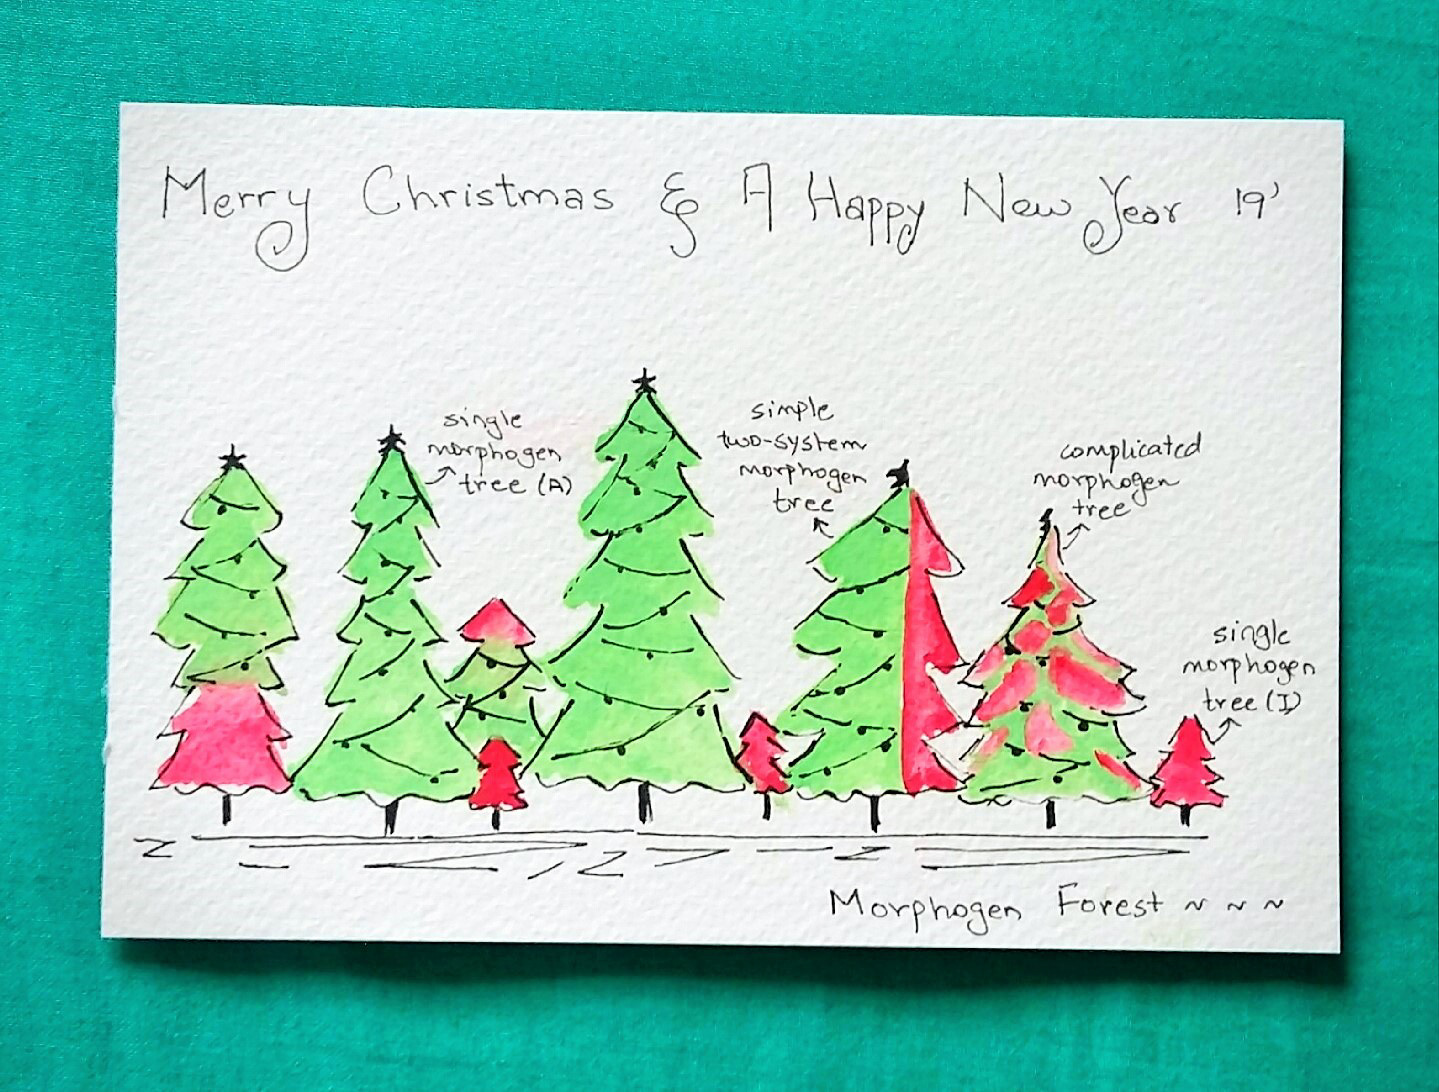 Merry Christmas & A Happy New Year 19'
single
morphogen
tree (A)
simple
two-system
morphogen
tree
complicated
morphogen
tree
single
morphogen
tree (I)
Morphogen Forest ~ ~ ~